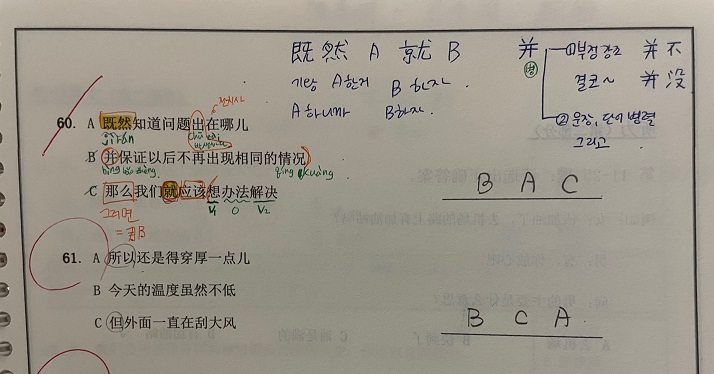 既然 A 就 B
기왕 A한거 B 하자.
A 하니까 B하자.
并 ①부정 강조 并 不
결코~ 并 没
②문장, 단어 병렬
그리고
60. A 既然知道问题出在哪儿
jìrán
B 并保证以后不再出现相同的情况
bìng bǎo zhèng
qíng kuàng
C 那么我们就应该想办法解决
V1 O V2
그러면
B A C
61. A 所以还是得穿厚一点儿
B 今天的温度虽然不低
C 但外面一直在刮大风
B C A